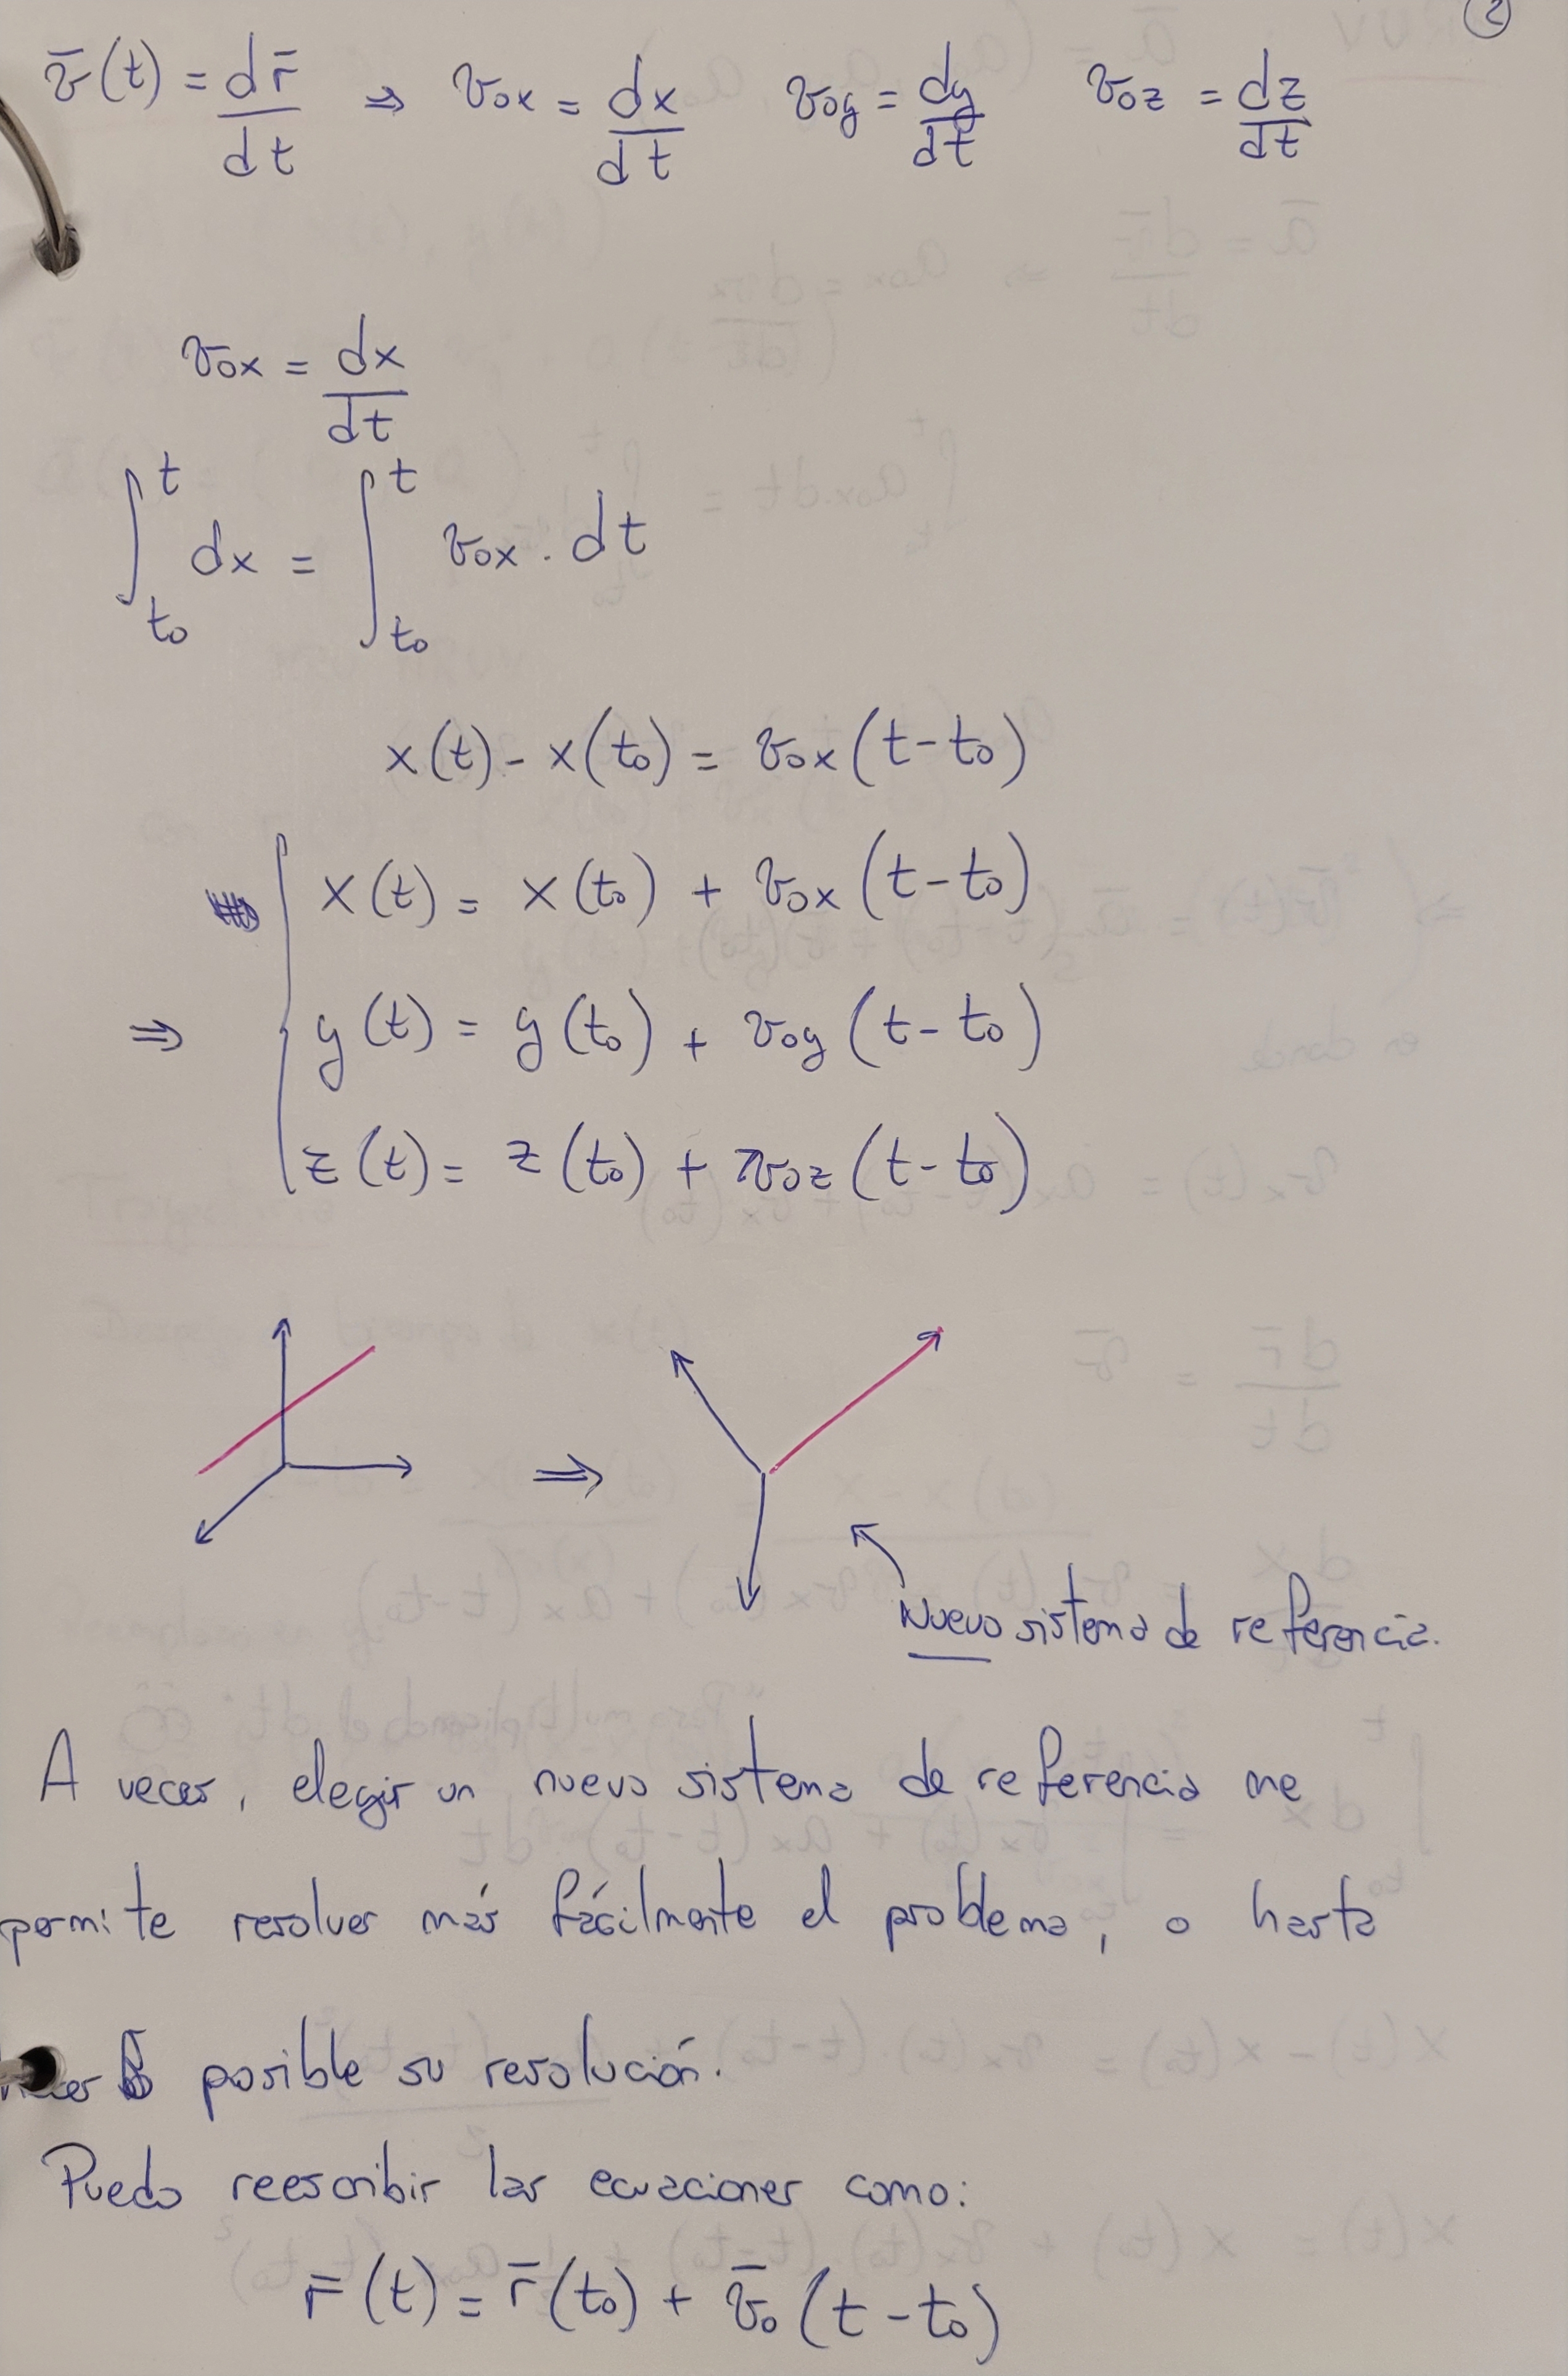 2
v̄(t) = dr̄/dt ⇒ v₀ₓ = dx/dt v₀y = dy/dt v₀z = dz/dt
v₀ₓ = dx/dt
∫_{t₀}^{t} dx = ∫_{t₀}^{t} v₀ₓ . dt
x(t) - x(t₀) = v₀ₓ(t-t₀)
x(t) = x(t₀) + v₀ₓ(t-t₀)
⇒ y(t) = y(t₀) + v₀y(t-t₀)
z(t) = z(t₀) + v₀z(t-t₀)
⇒
Nuevo sistema de referencia.
A veces, elegir un nuevo sistema de referencia me
permite resolver más fácilmente el problema, o hasta
posible su resolución.
Puedo reescribir las ecuaciones como:
r̄(t) = r̄(t₀) + v̄₀(t-t₀)